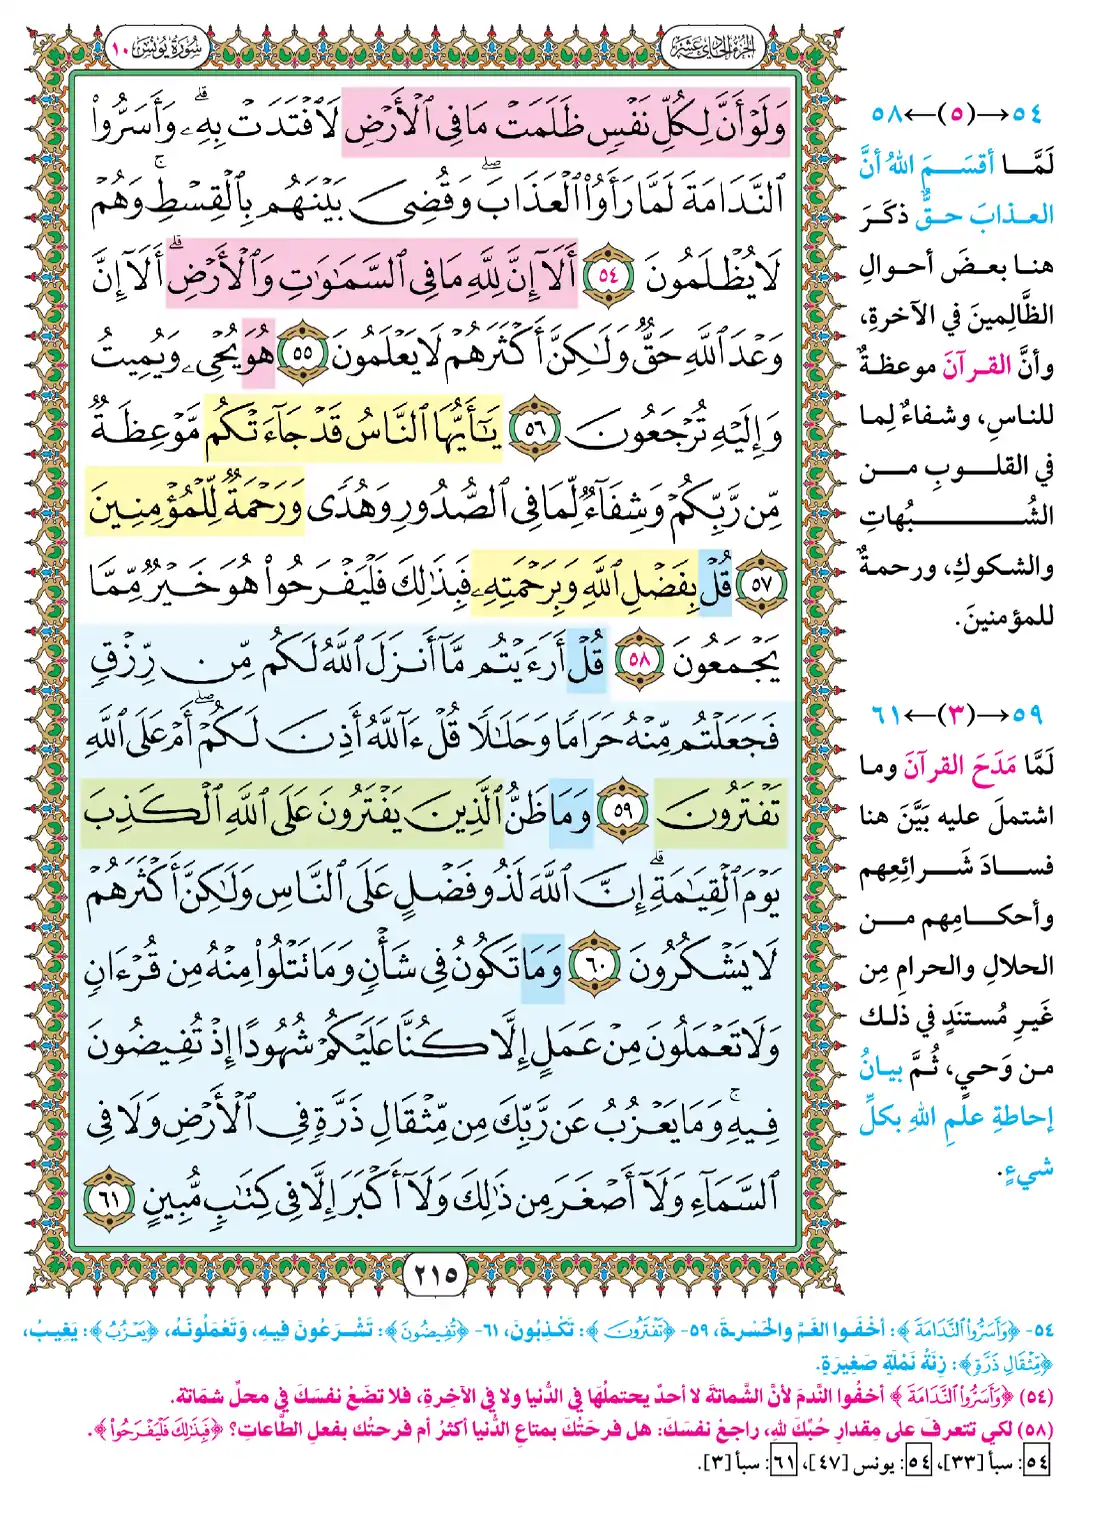 الجزء الحادي عشر
سورة يونس ١٠
وَلَوْ أَنَّ لِكُلِّ نَفْسٍ ظَلَمَتْ مَا فِي ٱلْأَرْضِ لَٱفْتَدَتْ بِهِۦۗ وَأَسَرُّوا۟
ٱلنَّدَامَةَ لَمَّا رَأَوُا۟ ٱلْعَذَابَۖ وَقُضِىَ بَيْنَهُم بِٱلْقِسْطِۚ وَهُمْ
لَا يُظْلَمُونَ ٥٤ أَلَآ إِنَّ لِلَّهِ مَا فِى ٱلسَّمَـٰوَٰتِ وَٱلْأَرْضِۗ أَلَآ إِنَّ
وَعْدَ ٱللَّهِ حَقٌّ وَلَـٰكِنَّ أَكْثَرَهُمْ لَا يَعْلَمُونَ ٥٥ هُوَ يُحْىِۦ وَيُمِيتُ
وَإِلَيْهِ تُرْجَعُونَ ٥٦ يَـٰٓأَيُّهَا ٱلنَّاسُ قَدْ جَآءَتْكُم مَّوْعِظَةٌ
مِّن رَّبِّكُمْ وَشِفَآءٌ لِّمَا فِى ٱلصُّدُورِ وَهُدًى وَرَحْمَةٌ لِّلْمُؤْمِنِينَ
٥٧ قُلْ بِفَضْلِ ٱللَّهِ وَبِرَحْمَتِهِۦ فَبِذَٰلِكَ فَلْيَفْرَحُوا۟ هُوَ خَيْرٌ مِّمَّا
يَجْمَعُونَ ٥٨ قُلْ أَرَءَيْتُم مَّآ أَنزَلَ ٱللَّهُ لَكُم مِّن رِّزْقٍ
فَجَعَلْتُم مِّنْهُ حَرَامًا وَحَلَـٰلًا قُلْ ءَآللَّهُ أَذِنَ لَكُمْۖ أَمْ عَلَى ٱللَّهِ
تَفْتَرُونَ ٥٩ وَمَا ظَنُّ ٱلَّذِينَ يَفْتَرُونَ عَلَى ٱللَّهِ ٱلْكَذِبَ
يَوْمَ ٱلْقِيَـٰمَةِۗ إِنَّ ٱللَّهَ لَذُو فَضْلٍ عَلَى ٱلنَّاسِ وَلَـٰكِنَّ أَكْثَرَهُمْ
لَا يَشْكُرُونَ ٦٠ وَمَا تَكُونُ فِى شَأْنٍ وَمَا تَتْلُوا۟ مِنْهُ مِن قُرْءَانٍ
وَلَا تَعْمَلُونَ مِنْ عَمَلٍ إِلَّا كُنَّا عَلَيْكُمْ شُهُودًا إِذْ تُفِيضُونَ
فِيهِۚ وَمَا يَعْزُبُ عَن رَّبِّكَ مِن مِّثْقَالِ ذَرَّةٍ فِى ٱلْأَرْضِ وَلَا فِى
ٱلسَّمَآءِ وَلَآ أَصْغَرَ مِن ذَٰلِكَ وَلَآ أَكْبَرَ إِلَّا فِى كِتَـٰبٍ مُّبِينٍ ٦١
٢١٥
٥٤→(٥)←٥٨
لَمَّا أقسَمَ اللهُ أنَّ
العذابَ حقٌّ ذكَرَ
هنا بعضَ أحوالِ
الظَّالِمينَ في الآخرةِ،
وأنَّ القرآنَ موعظةٌ
للناسِ، وشفاءٌ لِما
في القلوبِ من
الشُّبُهاتِ
والشكوكِ، ورحمةٌ
للمؤمنينَ.
٥٩→(٣)←٦١
لَمَّا مَدَحَ القرآنَ وما
اشتملَ عليه بَيَّنَ هنا
فسادَ شَرائِعِهم
وأحكامِهم من
الحلالِ والحرامِ مِن
غَيرِ مُستنَدٍ في ذلك
من وَحيٍ، ثُمَّ بيانُ
إحاطةِ علمِ اللهِ بكلِّ
شيءٍ.
٥٤- ﴿وَأَسَرُّوا۟ ٱلنَّدَامَةَ﴾: أَخْفَوا الغَمَّ والحَسْرةَ، ٥٩- ﴿تَفْتَرُونَ﴾: تَكْذِبُونَ، ٦١- ﴿تُفِيضُونَ﴾: تَشْرَعُونَ فِيهِ، وَتَعْمَلُونَهُ، ﴿يَعْزُبُ﴾: يَغِيبُ،
﴿مِّثْقَالِ ذَرَّةٍ﴾: زِنَةُ نَمْلَةٍ صَغِيرَةٍ.
(٥٤) ﴿وَأَسَرُّوا۟ ٱلنَّدَامَةَ﴾ أخفُوا النَّدمَ لأنَّ الشَّماتةَ لا أحدٌ يحتملُهَا في الدُّنيا ولا في الآخِرةِ، فلا تضَعْ نفسَكَ في محلِّ شمَاتة.
(٥٨) لكي تتعرفَ على مِقدارِ حُبِّكَ للهِ، راجعْ نفسَكَ: هل فرحَتُكَ بمتاعِ الدُّنيا أكثرُ أم فرحتُك بفعلِ الطَّاعاتِ؟ ﴿فَبِذَٰلِكَ فَلْيَفْرَحُوا۟﴾.
٥٤: سبأ [٣٣]، ٥٤: يونس [٤٧]، ٦١: سبأ [٣].